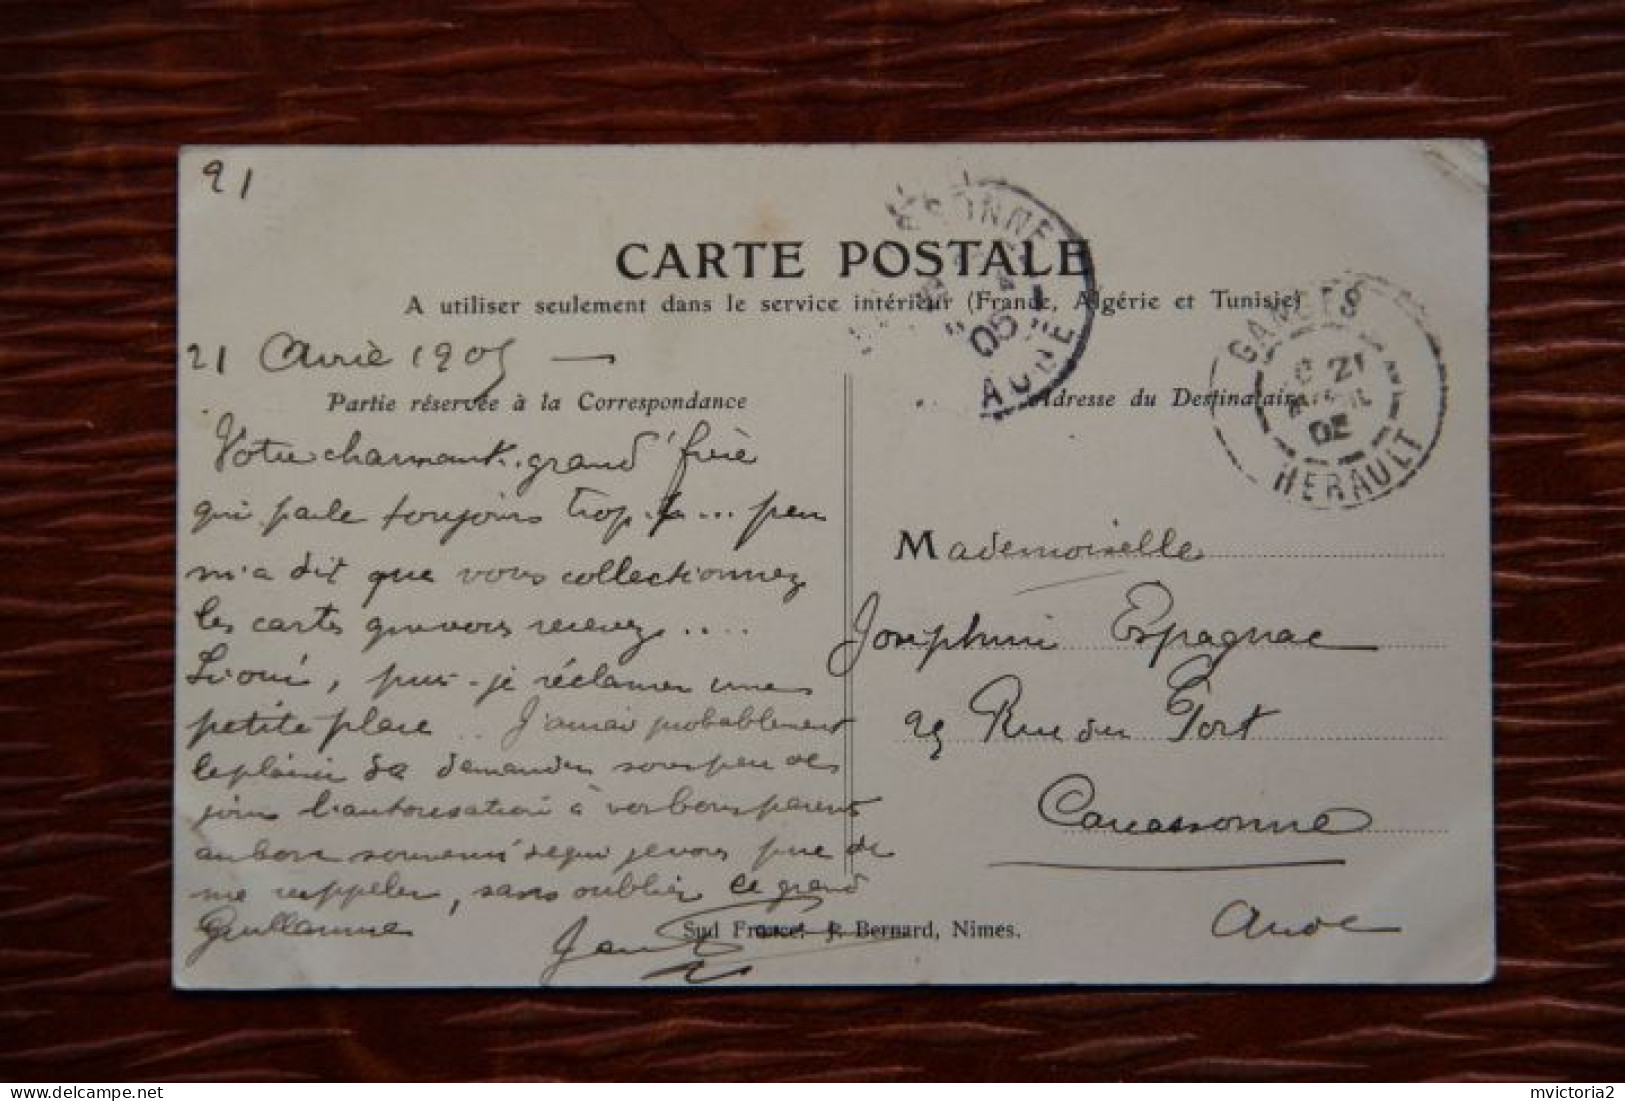 21
CARTE POSTALE
A utiliser seulement dans le service intérieur (France, Algérie et Tunisie)
21 Avril 1905 —
Partie réservée à la Correspondance
Votre charmant grand frère
qui parle toujours trop... peu
m'a dit que vous collectionnez
les cartes que vous recevez....
Si oui, puis-je réclamer une
petite place.. J'aurai probablement
le plaisir de demander sous peu de
vive l'autorisation à vos bons parents
au bon souvenir desquels je vous prie de
me rappeler, sans oublier ce grand
Guillaume
Sud France. J. Bernard, Nimes.
CARCASSONNE
05
AUDE
GANGES
21
AVRIL
05
HERAULT
Adresse du Destinataire
Mademoiselle
Joséphine Espagnac
25 Rue du Port
Carcassonne
Aude
mvictoria2